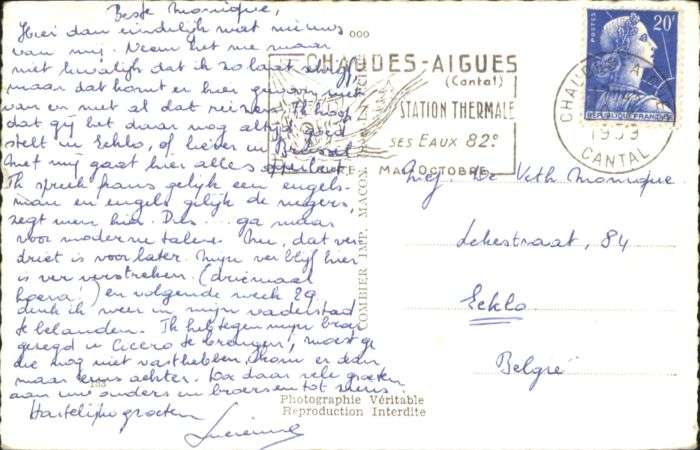 Beste Monique,
Hier dan eindelijk wat nieuws
van mij. Neem het me maar
niet kwalijk dat ik zo laat schrijf,
maar dat komt er hier gewoon niet
van en met al dat reizen. Ik hoop
dat gij het daar nog altijd goed
stelt in Eeklo, of liever in
Met mij gaat hier alles opperbest.
Ik spreek frans gelijk een engels-
man en engels gelijk de negers
zegt men hier. Dus ... ga maar
voor moderne talen. Nu, dat ver
driet is voor later. Mijn verblijf hier
is ver verstreken. (driemaal
hoera!) en volgende week 29
denk ik weer in mijn vaderstad
te belanden. Ik heb tegen mijn broer
gezegd u Cicero te brengen, moest ge
die nog niet vasthebben, kom er dan
maar eens achter. Voor daar vele groeten
aan uw ouders en broers en tot ziens.
Hartelijke groeten
Lucienne
133
COMBIER IMP. MACON
CHAUDES-AIGUES
(Cantal)
STATION THERMALE
SES EAUX 82°
MAI OCTOBRE
POSTES
20F
REPUBLIQUE FRANÇAISE
CHAUDES-AIGUES
1959
CANTAL
Mej. De Vith Monique
Lekestraat, 84
Eeklo
België
Photographie Véritable
Reproduction Interdite